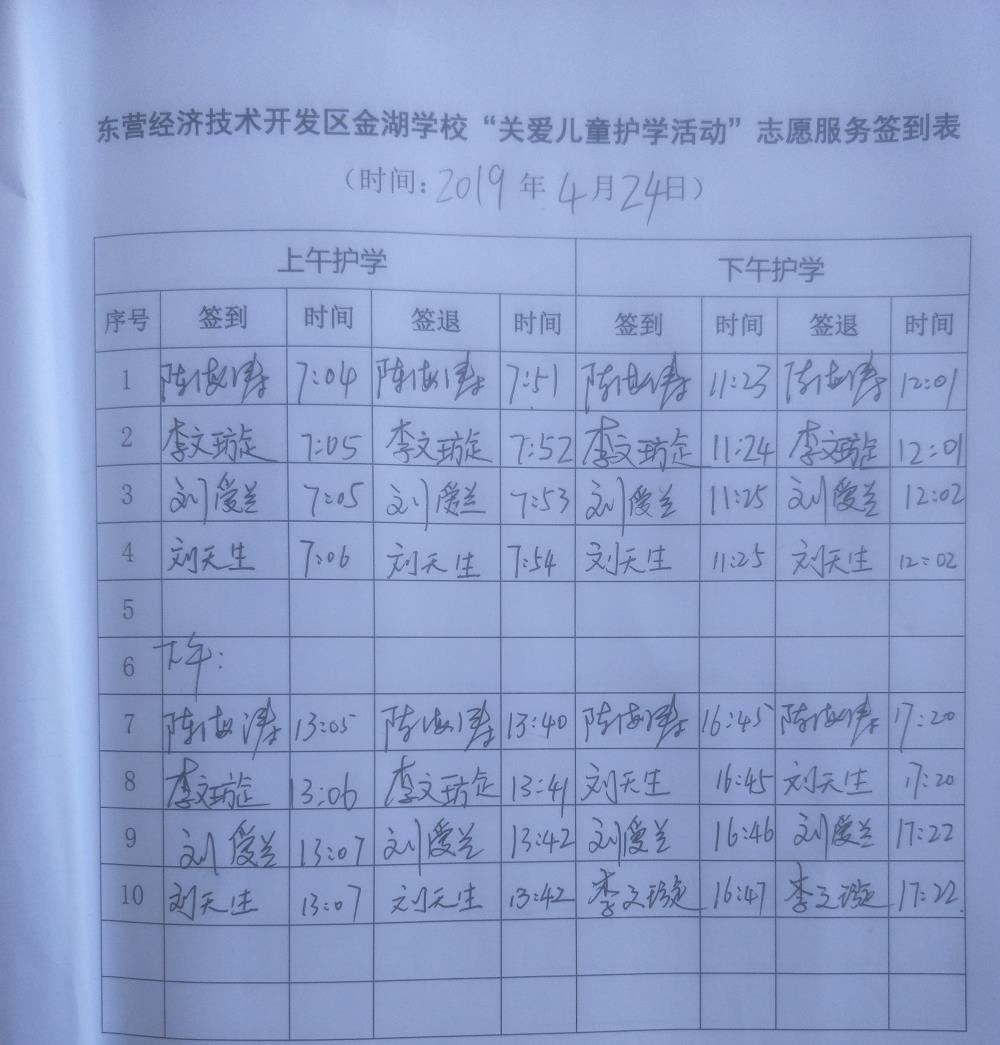 东营经济技术开发区金湖学校“关爱儿童护学活动”志愿服务签到表
（时间：2019年4月24日）
上午护学 下午护学
序号 签到 时间 签退 时间 签到 时间 签退 时间
1 陈海涛 7:04 陈海涛 7:51 陈海涛 11:23 陈海涛 12:01
2 李文璇 7:05 李文璇 7:52 李文璇 11:24 李文璇 12:01
3 刘爱兰 7:05 刘爱兰 7:53 刘爱兰 11:25 刘爱兰 12:02
4 刘天生 7:06 刘天生 7:54 刘天生 11:25 刘天生 12:02
5
6 下午：
7 陈海涛 13:05 陈海涛 13:40 陈海涛 16:45 陈海涛 17:20
8 李文璇 13:06 李文璇 13:41 刘天生 16:45 刘天生 17:20
9 刘爱兰 13:07 刘爱兰 13:42 刘爱兰 16:46 刘爱兰 17:22
10 刘天生 13:07 刘天生 13:42 李文璇 16:47 李文璇 17:22